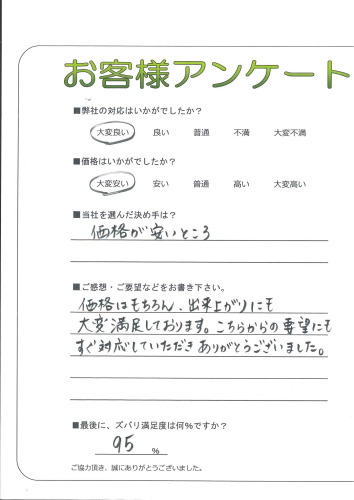 お客様アンケート
■弊社の対応はいかがでしたか?
大変良い 良い 普通 不満 大変不満
■価格はいかがでしたか?
大変安い 安い 普通 高い 大変高い
■当社を選んだ決め手は?
価格が安いところ
■ご感想・ご要望などをお書き下さい。
価格はもちろん、出来上がりにも
大変満足しております。こちらからの要望にも
すぐ対応していただきありがとうございました。
■最後に、ズバリ満足度は何%ですか?
95 %
ご協力頂き、誠にありがとうございました。